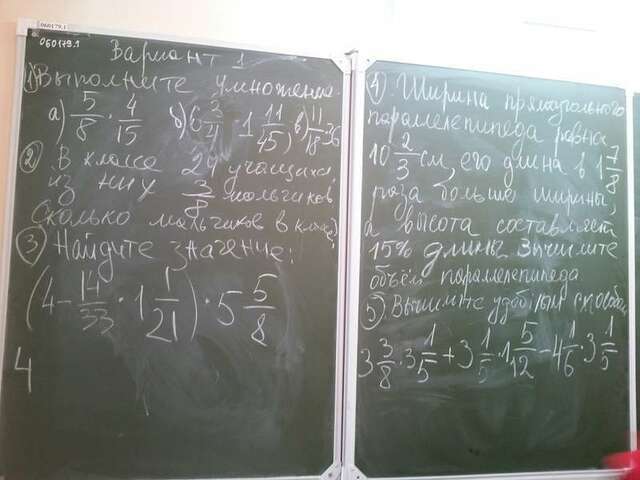 060179.1
060179.1
Вариант 1
1) Выполните умножение.
а) 5/8 · 4/15 б) 6 3/4 · 1 11/45) в) 11/18 · 36
2) В классе 24 учащихся,
из них 3/8 мальчиков
Сколько мальчиков в классе?
3) Найдите значение:
(4 - 14/33 · 1 1/21) · 5 5/8
4
4) Ширина прямоугольного
параллелепипеда равна
10 2/3 см, его длина в 1 7/8
раза больше ширины,
а высота составляет
15% длины. Вычислите
объём параллелепипеда
5) Вычислите удобным способом
3 3/8 · 3 1/5 + 3 1/5 · 1 5/12 - 4 1/6 · 3 1/5